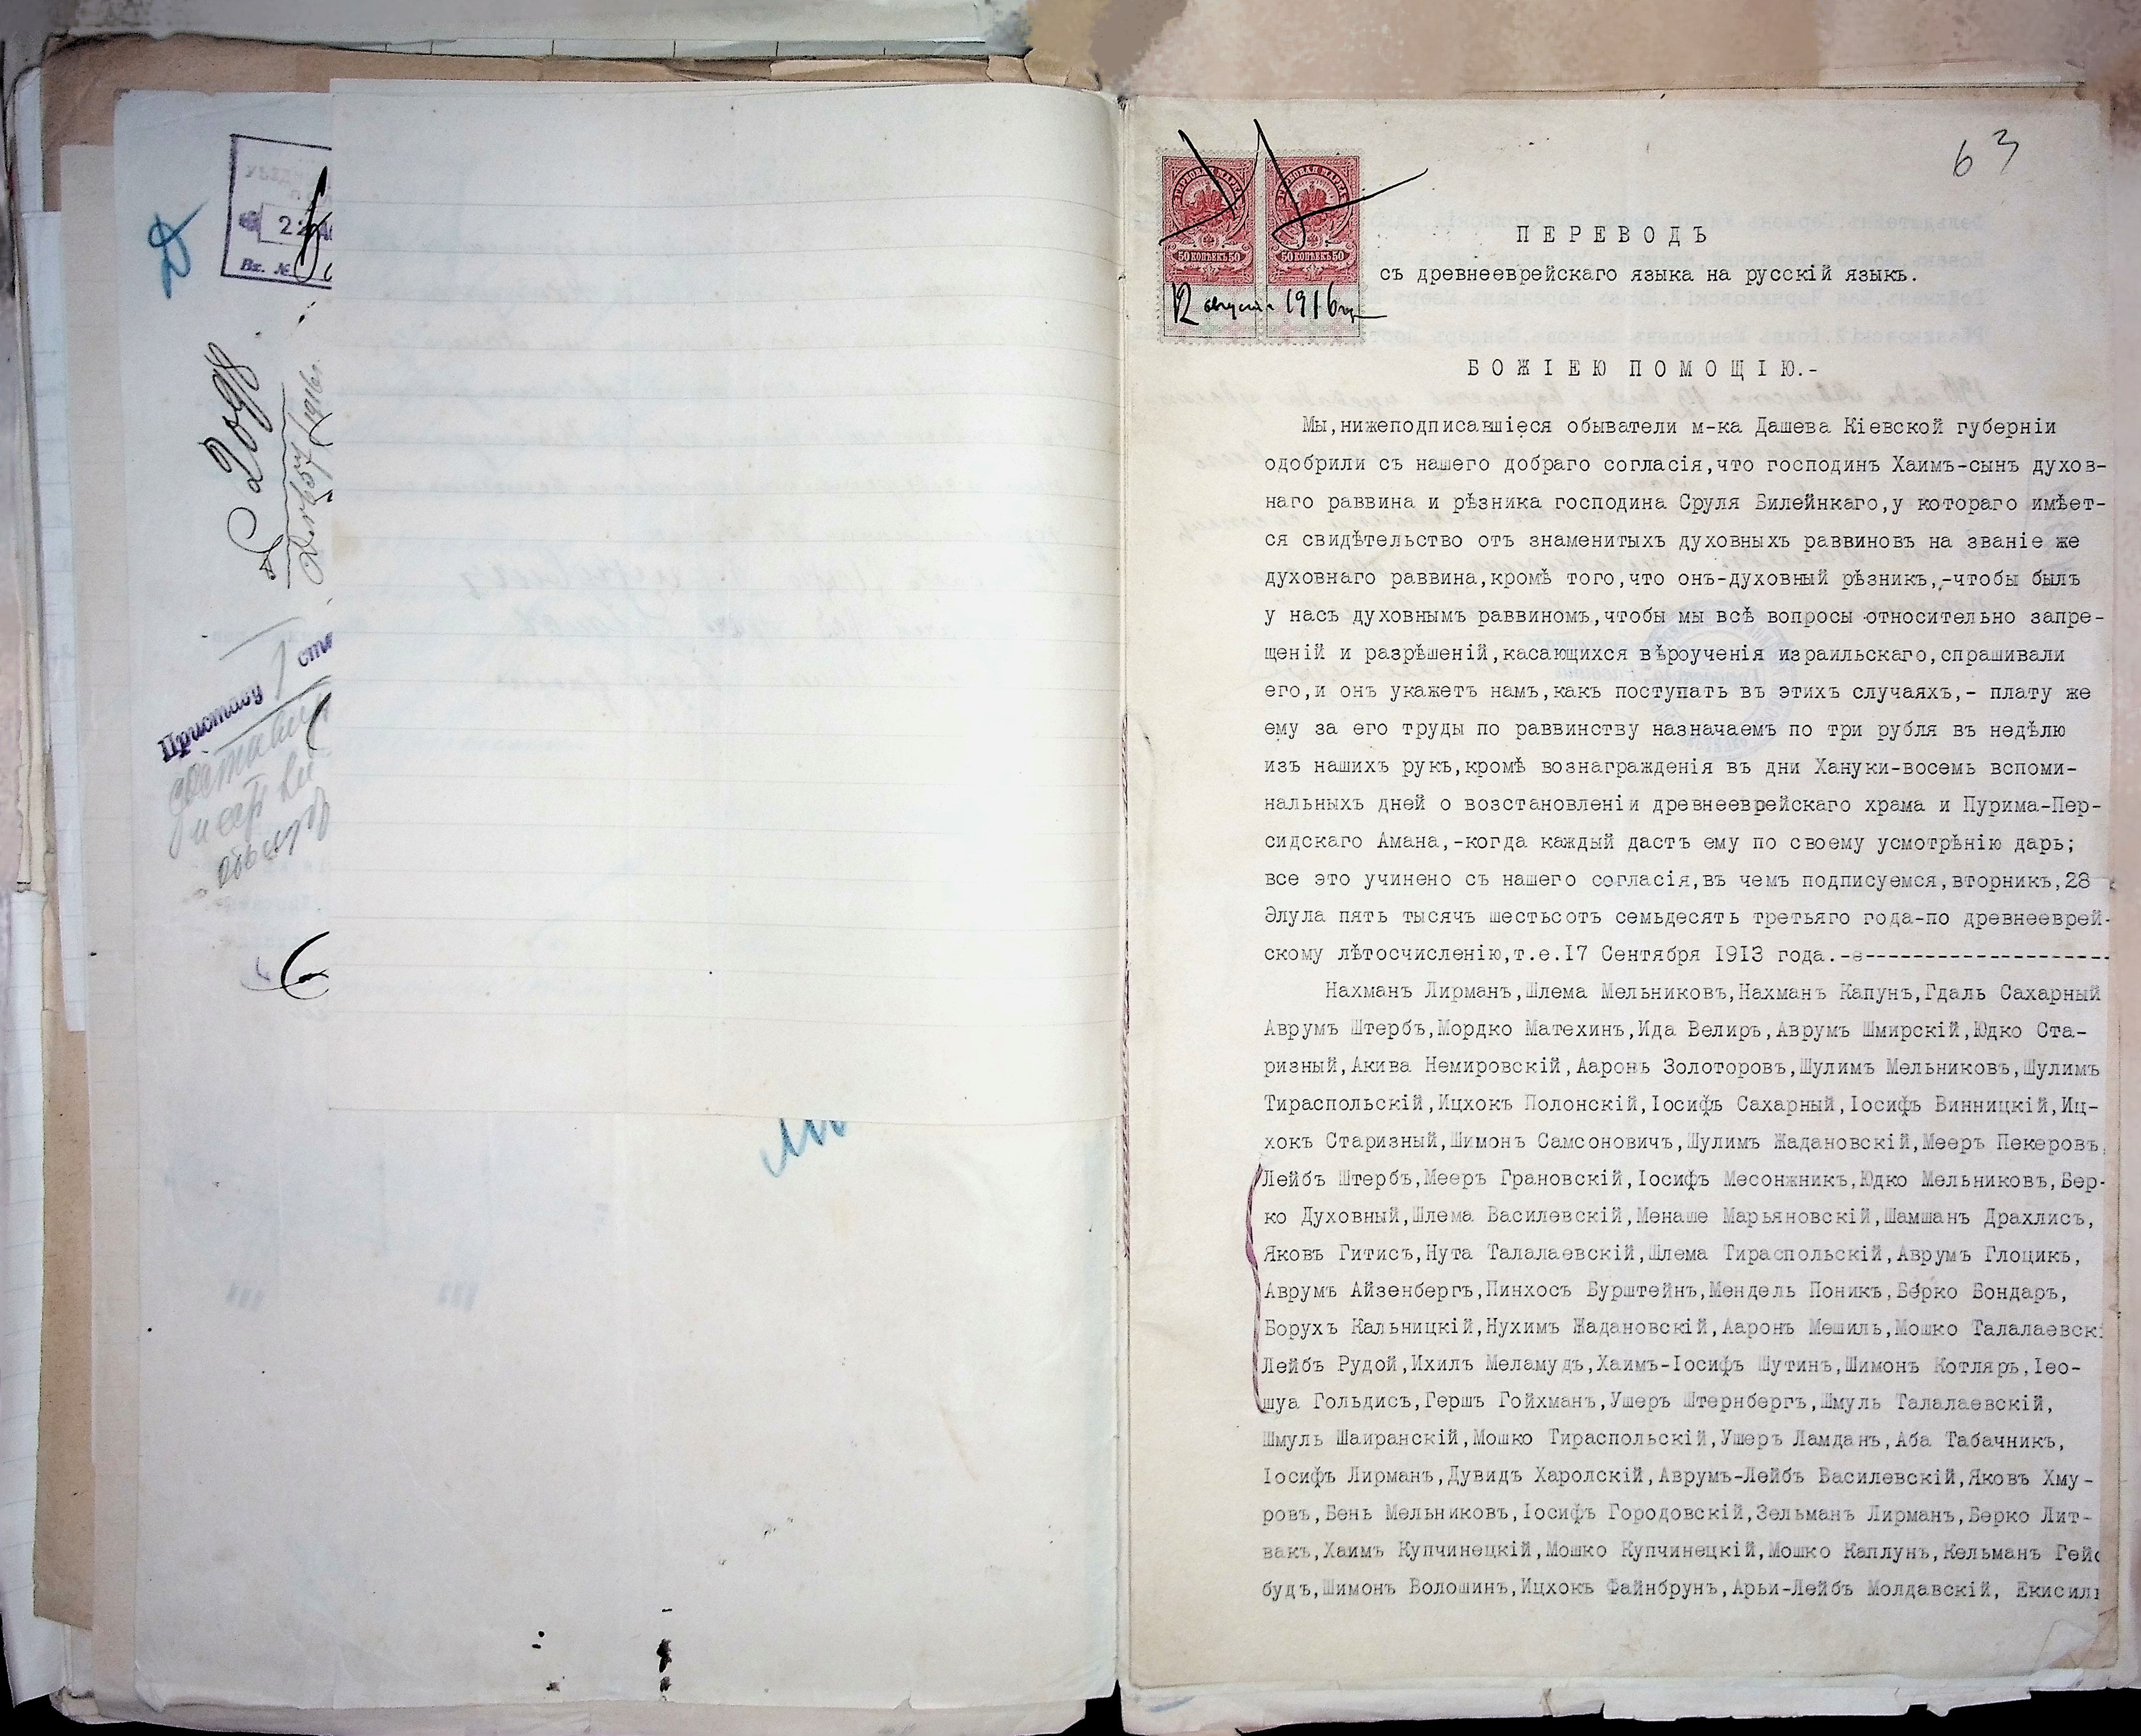 22
Вх. №
2098
1916г.
Приставу 1 ста
63
ГЕРБОВАЯ МАРКА
ГЕРБОВАЯ МАРКА
50 КОПѢЕКЪ 50
50 КОПѢЕКЪ 50
12 августа 1916 г.
ПЕРЕВОДЪ
съ древнееврейскаго языка на русскій языкъ.
БОЖІЕЮ ПОМОЩІЮ.-
Мы,нижеподписавшіеся обыватели м-ка Дашева Кіевской губерніи
одобрили съ нашего добраго согласія,что господинъ Хаимъ-сынъ духов-
наго раввина и рѣзника господина Сруля Билейнкаго,у котораго имѣет-
ся свидѣтельство отъ знаменитыхъ духовныхъ раввиновъ на званіе же
духовнаго раввина,кромѣ того,что онъ-духовный рѣзникъ,-чтобы былъ
у насъ духовнымъ раввиномъ,чтобы мы всѣ вопросы относительно запре-
щеній и разрѣшеній,касающихся вѣроученія израильскаго,спрашивали
его,и онъ укажетъ намъ,какъ поступать въ этихъ случаяхъ,- плату же
ему за его труды по раввинству назначаемъ по три рубля въ недѣлю
изъ нашихъ рукъ,кромѣ вознагражденія въ дни Хануки-восемь вспоми-
нальныхъ дней о возстановленіи древнееврейскаго храма и Пурима-Пер-
сидскаго Амана,-когда каждый дастъ ему по своему усмотрѣнію даръ;
все это учинено съ нашего согласія,въ чемъ подписуемся,вторникъ,28
Элула пять тысячъ шестьсотъ семьдесять третьяго года-по древнееврей-
скому лѣтосчисленію,т.е.17 Сентября 1913 года.-е--------------------
Нахманъ Лирманъ,Шлема Мельниковъ,Нахманъ Капунъ,Гдаль Сахарный
Аврумъ Штербъ,Мордко Матехинъ,Ида Велиръ,Аврумъ Шмирскій,Юдко Ста-
ризный,Акива Немировскій,Ааронъ Золоторовъ,Шулимъ Мельниковъ,Шулимъ
Тираспольскій,Ицхокъ Полонскій,Іосифъ Сахарный,Іосифъ Винницкій,Иц-
хокъ Старизный,Шимонъ Самсоновичъ,Шулимъ Жадановскій,Мееръ Пекеровъ,
Лейбъ Штербъ,Мееръ Грановскій,Іосифъ Месонжникъ,Юдко Мельниковъ,Бер-
ко Духовный,Шлема Василевскій,Менаше Марьяновскій,Шамшанъ Драхлисъ,
Яковъ Гитисъ,Нута Талалаевскій,Шлема Тираспольскій,Аврумъ Глоцикъ,
Аврумъ Айзенбергъ,Пинхосъ Бурштейнъ,Мендель Поникъ,Берко Бондаръ,
Борухъ Кальницкій,Нухимъ Жадановскій,Ааронъ Мешиль,Мошко Талалаевскі
Лейбъ Рудой,Ихилъ Меламудъ,Хаимъ-Іосифъ Шутинъ,Шимонъ Котляръ,Іео-
шуа Гольдисъ,Гершъ Гойхманъ,Ушеръ Штернбергъ,Шмуль Талалаевскій,
Шмуль Шаиранскій,Мошко Тираспольскій,Ушеръ Ламданъ,Аба Табачникъ,
Іосифъ Лирманъ,Дувидъ Харолскій,Аврумъ-Лейбъ Василевскій,Яковъ Хму-
ровъ,Бень Мельниковъ,Іосифъ Городовскій,Зельманъ Лирманъ,Берко Лит-
вакъ,Хаимъ Купчинецкій,Мошко Купчинецкій,Мошко Каплунъ,Кельманъ Гейс
будъ,Шимонъ Волошинъ,Ицхокъ Файнбрунъ,Арьи-Лейбъ Молдавскій, Екисиль